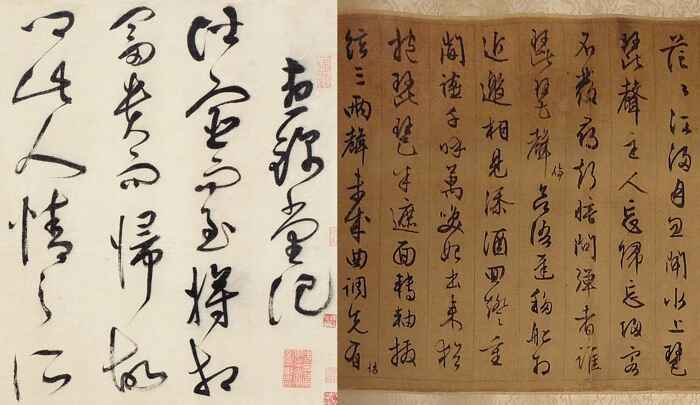 晝錦堂記
仕宦而至將相
富貴而歸故
鄉此人情之所
茫〻江浸月忽聞水上琵
琶聲主人忘歸忘返客
不發尋聲暗問彈者誰
琵琶聲停欲語遲移船相
近邀相見添酒回燈重
開宴千呼萬喚始出來猶
抱琵琶半遮面轉軸撥
絃三兩聲未成曲調先有情